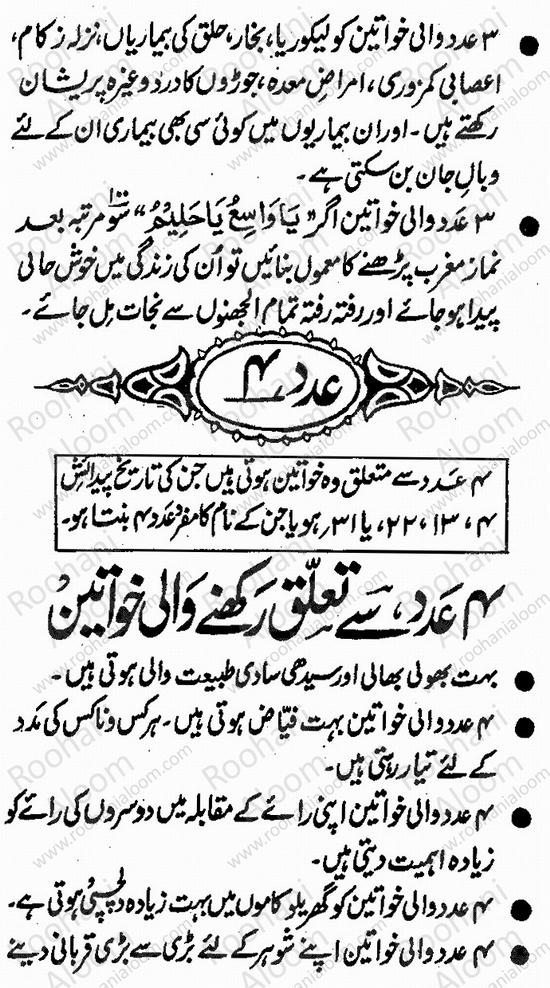 ● ۳ عدد والی خواتین کو لیکوریا، بخار، حلق کی بیماریاں، نزلہ زکام،
اعصابی کمزوری، امراضِ معدہ، جوڑوں کا درد وغیرہ پریشان
رکھتے ہیں۔ اور ان بیماریوں میں کوئی سی بھی بیماری ان کے لئے
وبالِ جان بن سکتی ہے۔
● ۳ عدد والی خواتین اگر "یَا وَاسِعُ یَا حَلِیْمُ" سو ۱۰۰ مرتبہ بعد
نماز مغرب پڑھنے کا معمول بنائیں تو اُن کی زندگی میں خوش حالی
پیدا ہو جائے اور رفتہ رفتہ تمام الجھنوں سے نجات مِل جائے۔
عدد ۴
۴ عدد سے متعلق وہ خواتین ہوتی ہیں جن کی تاریخ پیدائش
۴، ۱۳، ۲۲، یا ۳۱ ہو یا جن کے نام کا مفرد عدد ۴ بنتا ہو۔
۴ عدد، سے تعلّق رکھنے والی خواتین
● بہت بھولی بھالی اور سیدھی سادی طبیعت والی ہوتی ہیں۔
● ۴ عدد والی خواتین بہت فیّاض ہوتی ہیں۔ ہر کس و ناکس کی مدد
کے لئے تیار رہتی ہیں۔
● ۴ عدد والی خواتین اپنی رائے کے مقابلہ میں دوسروں کی رائے کو
زیادہ اہمیت دیتی ہیں۔
● ۴ عدد والی خواتین کو گھریلو کاموں میں بہت زیادہ دلچسپی ہوتی ہے۔
● ۴ عدد والی خواتین اپنے شوہر کے لئے بڑی سے بڑی قربانی دینے
Roohani Aloom
www.roohanialoom.com